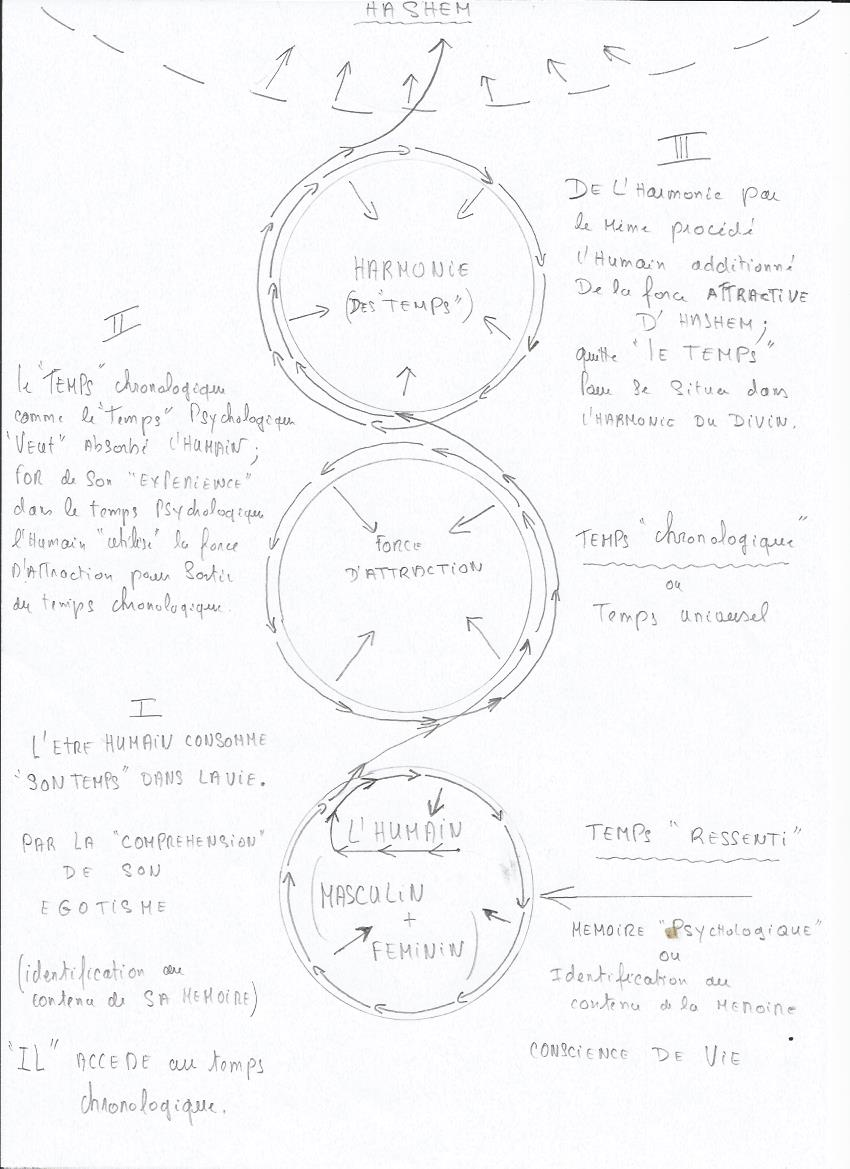 HASHEM
III
DE L'Harmonie par
le Même procédé
l'Humain additionné
De la force ATTRACTIVE
D'HASHEM ;
quitte "lE TEMPS"
Pour se situer dans
L'HARMONIE DU DIVIN.
HARMONIE
(DES "TEMPS")
II
le "TEMPS" chronologique
comme le "Temps" Psychologique
"VEUT" ABSORBÉ L'HUMAIN ;
FOR de son "EXPERIENCE"
dans le temps Psychologique
l'Humain "utilise" la force
D'ATTraction pour Sortir
du temps chronologique.
FORCE
D'ATTRACTION
TEMPS "chronologique"
ou
Temps universel
I
L'ETRE HUMAIN CONSOMME
"SON TEMPS" DANS LA VIE.
PAR LA "COMPREHENSION"
DE SON
EGOTISME
(identification au
contenu de SA MEMOIRE)
"IL" ACCEDE au temps
chronologique.
L'HUMAIN
(MASCULIN
+
FEMININ)
TEMPS "RESSENTI"
MEMOIRE "PsychologiQUE"
ou
Identification au
contenu de la MEMOIRE
CONSCIENCE DE VIE